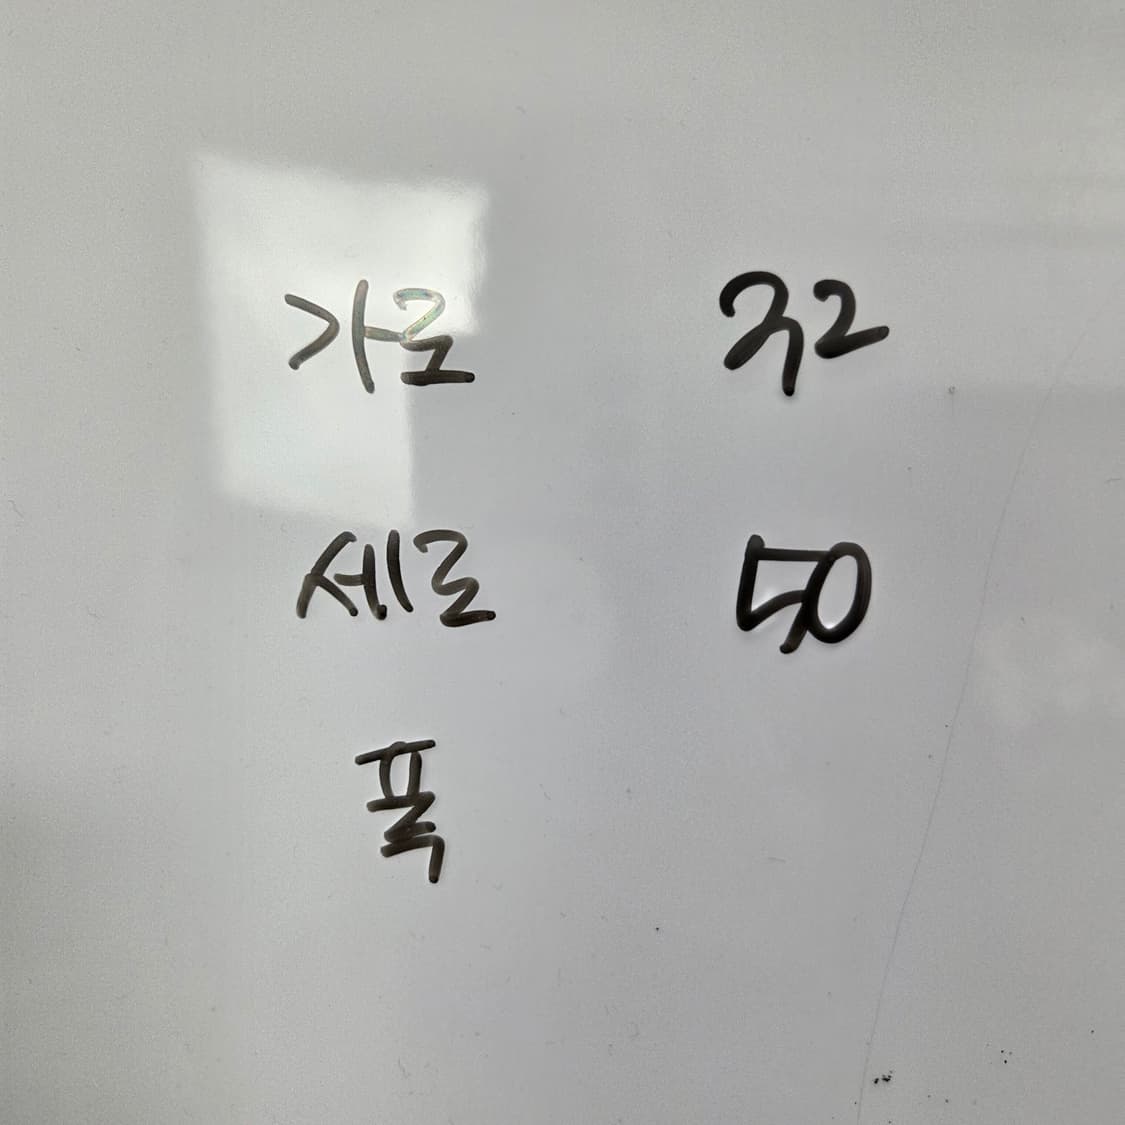 가로 72
세로 50
폭